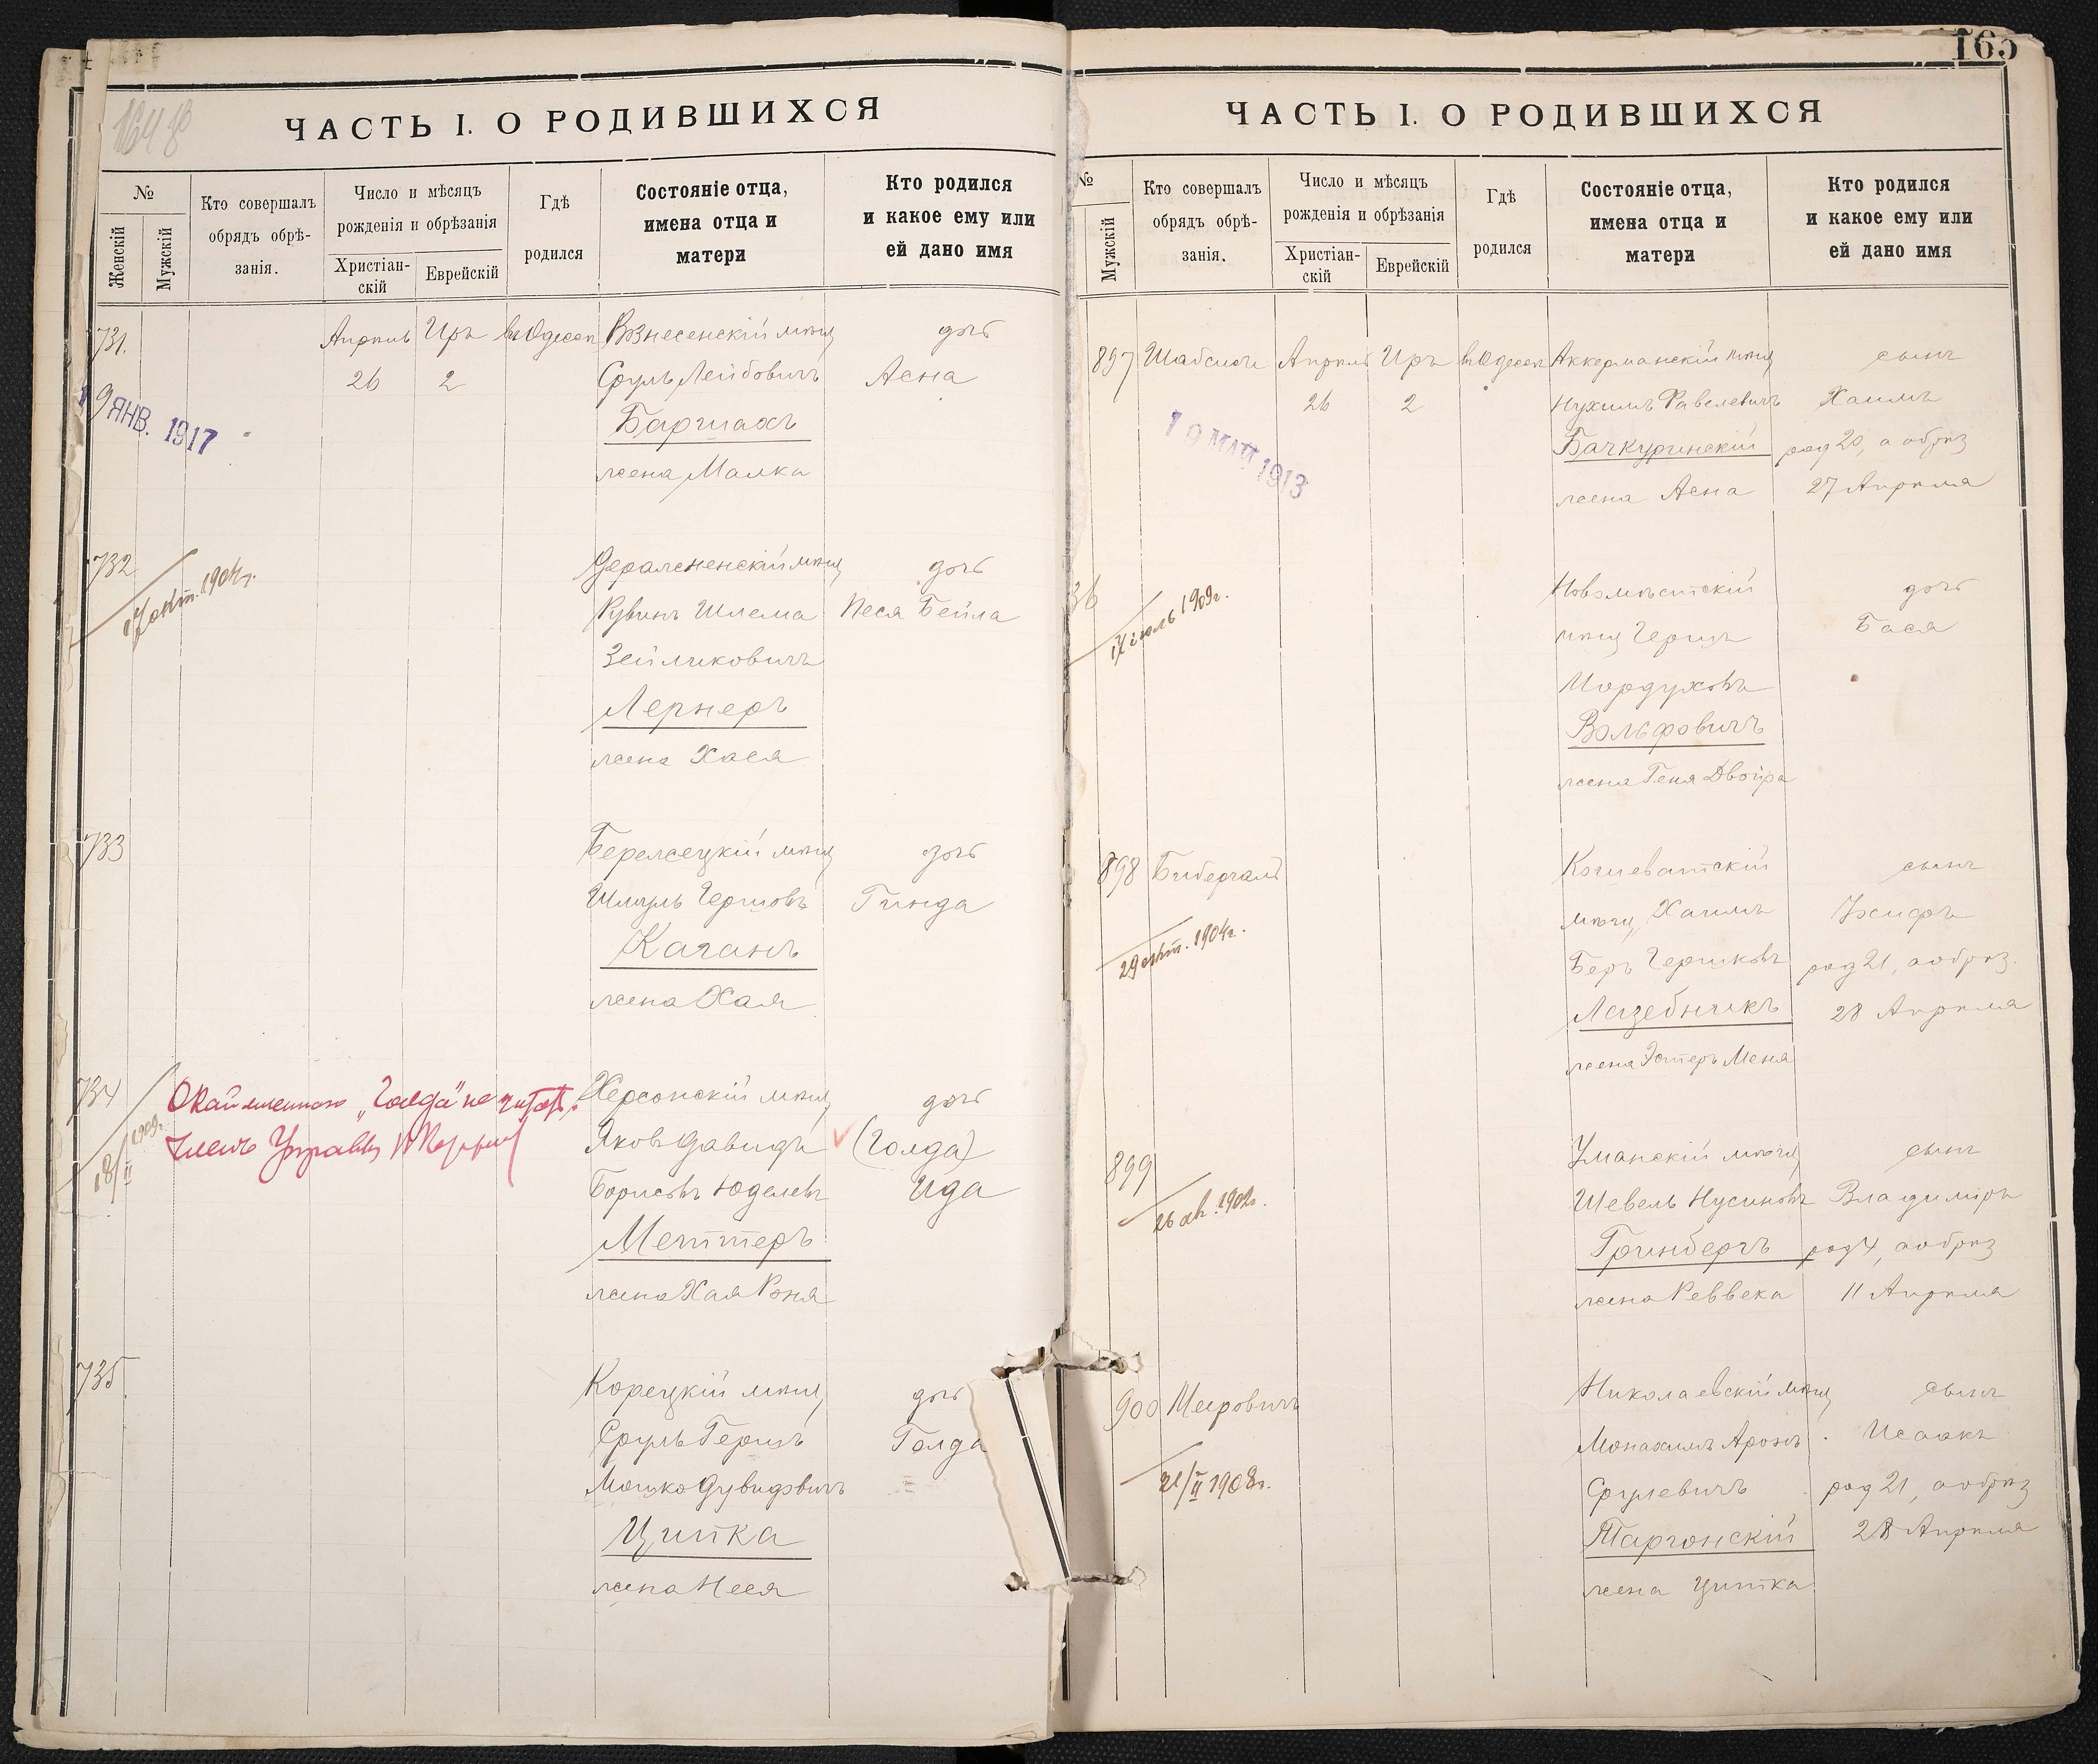 164 об
ЧАСТЬ I. О РОДИВШИХСЯ
№
Женскій
Мужскій
Кто совершалъ
обрядъ обрѣ-
занія.
Число и мѣсяцъ
рожденія и обрѣзанія
Христіан-
скій
Еврейскій
Гдѣ
родился
Состояніе отца,
имена отца и
матери
Кто родился
и какое ему или
ей дано имя
731. Апрель Иръ въ Одессѣ Вознесенскій мѣщ дочь
26 2 Сруль Лейбовичъ Асна
9 ЯНВ. 1917
Баршахъ
жена Малка
732 Деражненскій мѣщ дочь
окт. 1904г.
Рувинъ Шлема Песя Бейла
Зейликовичъ
Лернеръ
жена Хася
733 Бережецкій мѣщ дочь
Шмуль Гершовъ Гинда
Каганъ
жена Хая
734 Окаймленное „Голда" не читать. Херсонскій мѣщ дочь
Членъ Управы Яковъ Давидъ (Голда)
18/II 1909г.
Борисовъ Юделевъ Ида
Меттеръ
жена Хая Роня
735 Корецкій мѣщ дочь
Сруль Гершъ Голда
Мошко Дувидовичъ
Ципка
жена Неся
165
ЧАСТЬ I. О РОДИВШИХСЯ
№
Мужскій
Кто совершалъ
обрядъ обрѣ-
занія.
Число и мѣсяцъ
рожденія и обрѣзанія
Христіан-
скій
Еврейскій
Гдѣ
родился
Состояніе отца,
имена отца и
матери
Кто родился
и какое ему или
ей дано имя
897 Шабсисъ Апрель Иръ въ Одессѣ Аккерманскій мѣщ сынъ
26 2 Нухимъ Фавелевичъ Хаимъ
19 МАЯ 1913
Бачкуринскій род 20, а обрѣз
жена Асна 27 Апрѣля
36 Новомѣстскій дочь
іюль 1909г.
мѣщ Гершъ Бася
Мордуховъ
Вольфовичъ
жена Геня Двойра
898 Бибергалъ Кошеватскій сынъ
мѣщ Хаимъ Іосифъ
29 окт. 1904г.
Беръ Гершковъ род 21, а обрѣз.
Лазебникъ 28 Апрѣля
жена Эстеръ Меня
899 Уманскій мѣщ сынъ
26 ав. 1902г.
Шевель Нусиновъ Владиміръ
Гринбергъ род 4, а обрѣз
жена Реввека 11 Апрѣля
900 Мееровичъ Николаевскій мѣщ сынъ
Монахимъ Аронъ Исаакъ
21/II 1908г.
Срулевичъ род 21, а обрѣз
Таргонскій 28 Апрѣля
жена Ципка